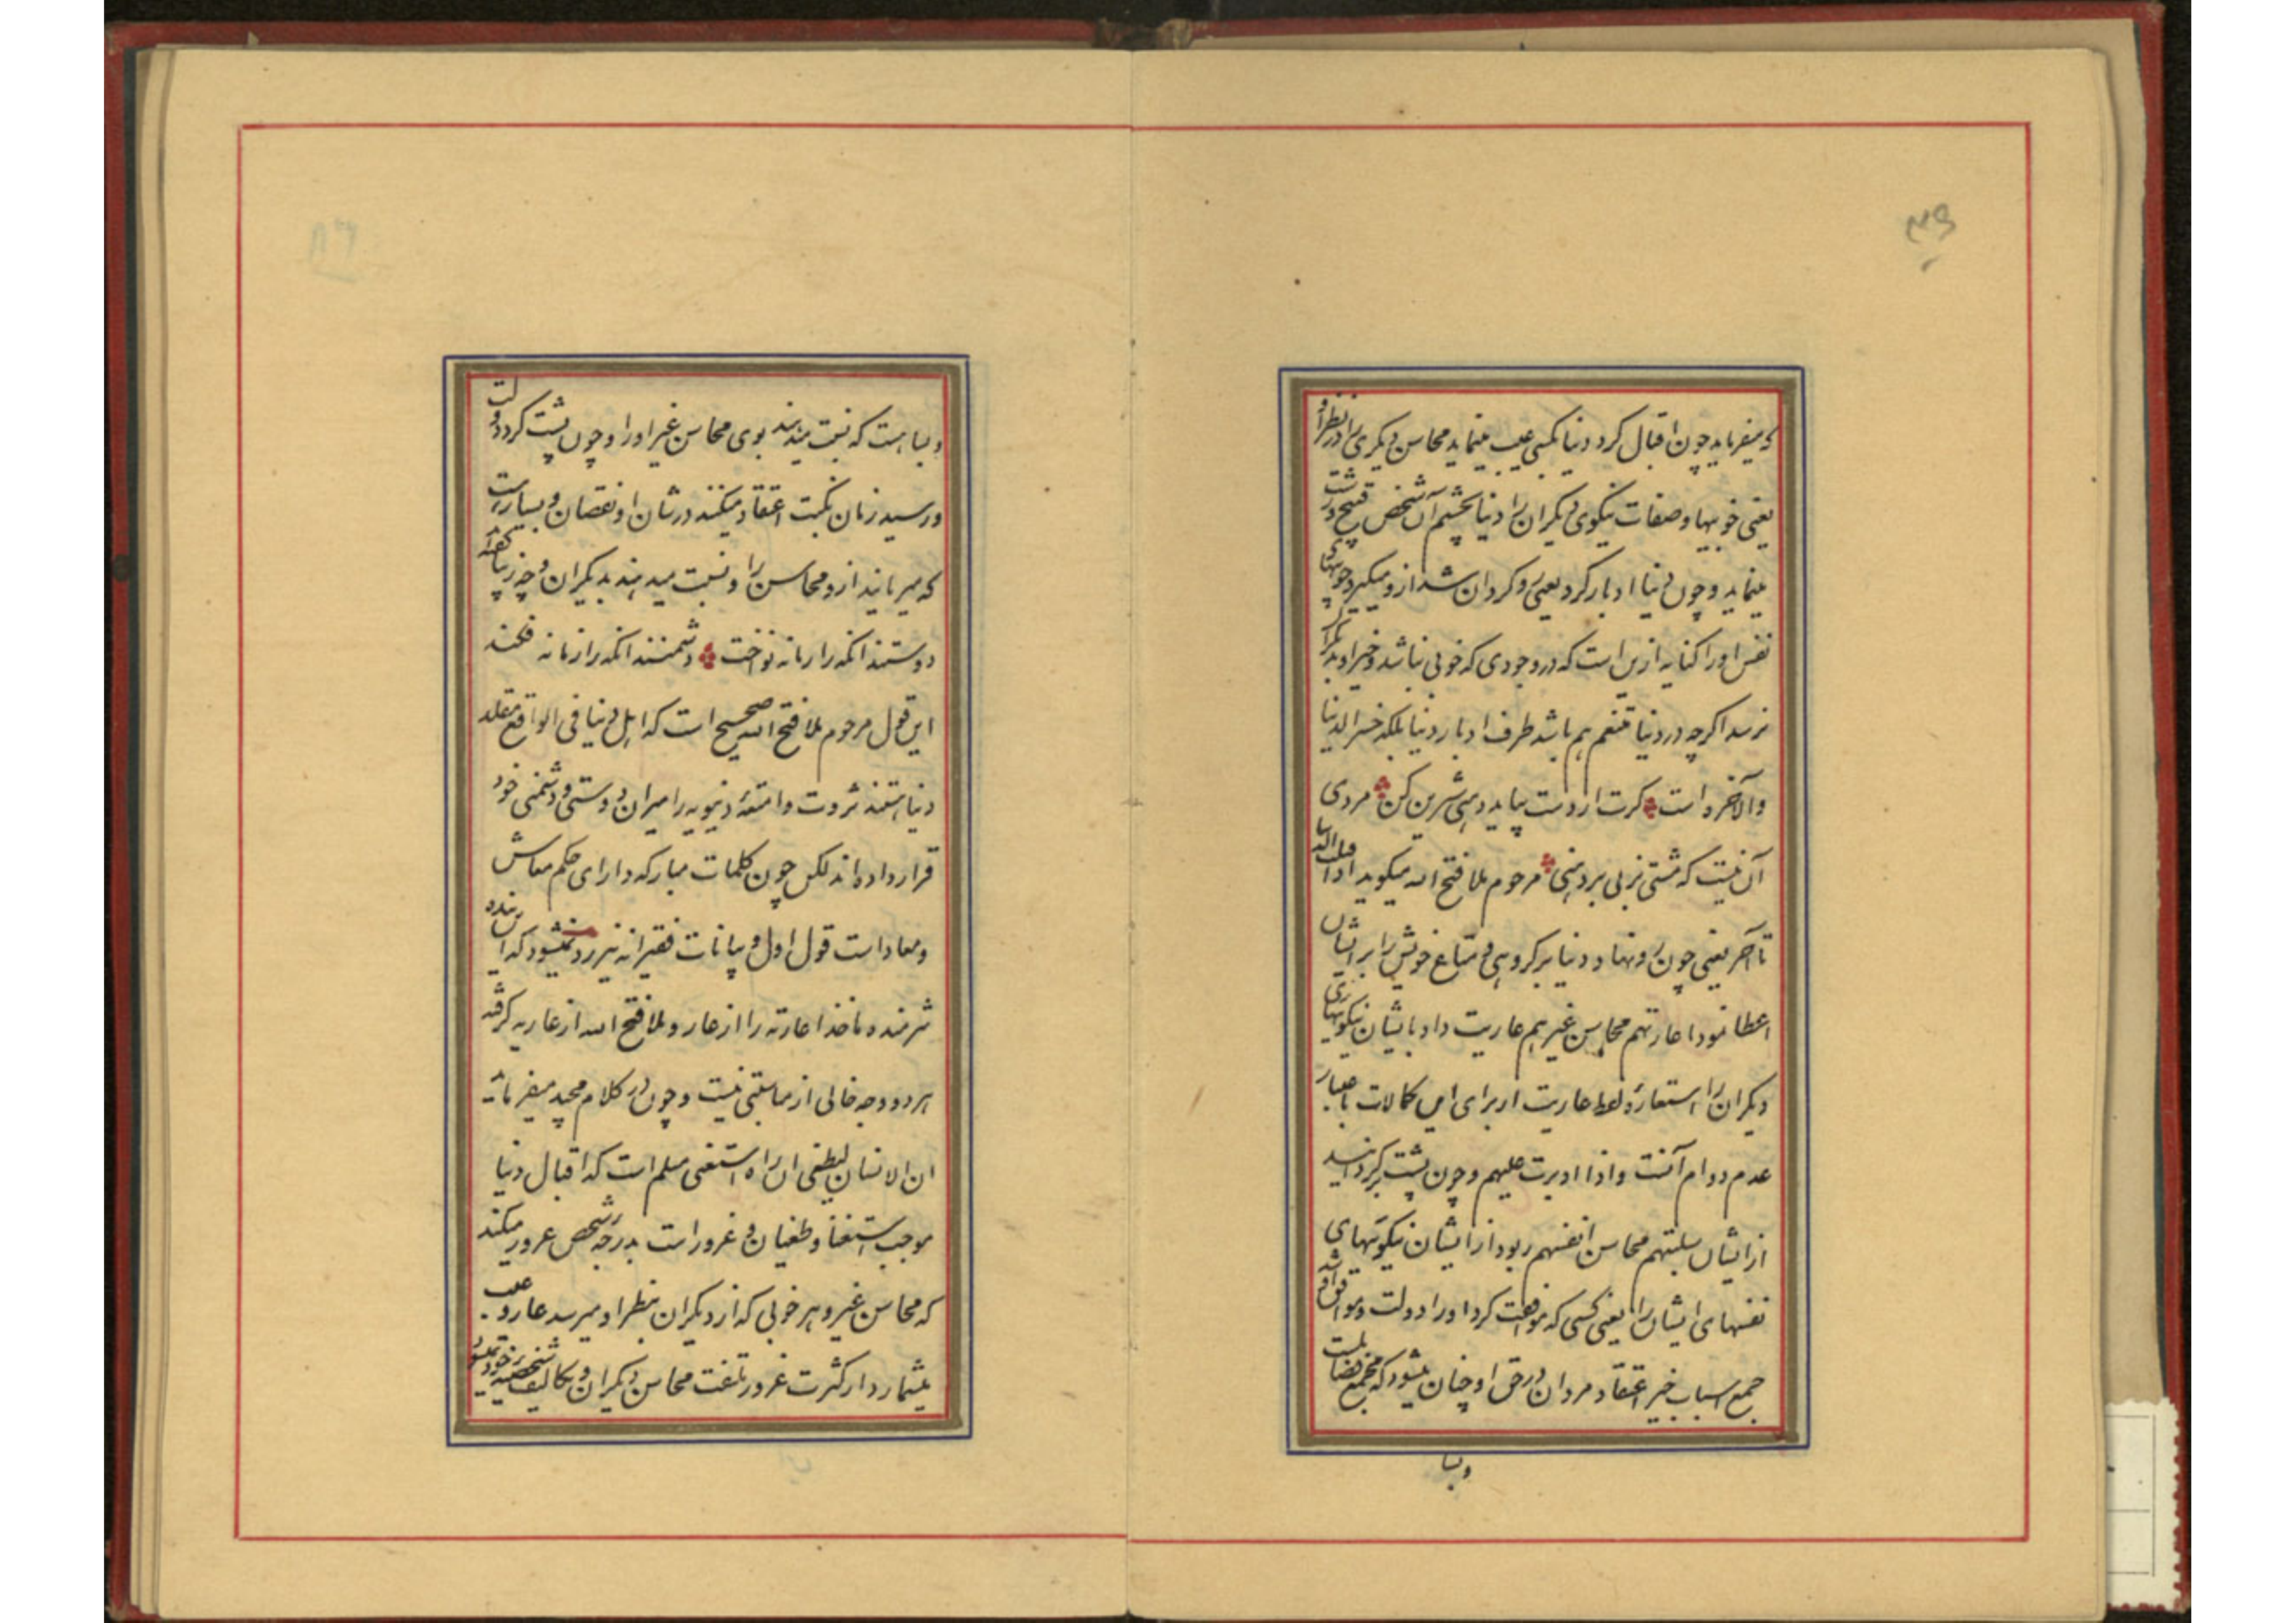 ۳۹
که میفرماید چون اقبال کرد دنیا بکسی عیب مینماید محاسن دیگری را در نظر او
یعنی خوبیها و صفات نیکوی دیگران را دنیا بچشم آن شخص قبیح و زشت
مینماید و چون دنیا ادبار کرد یعنی روگردان شد از او میگیرد خوبیهای
نفس او را کنایه ازین است که در وجودی که خوبی نباشد و خیر او بدیگران
نرسد اگرچه در دنیا متنعم هم باشد طرف ادبار دنیا بلکه خسر الدنیا
والآخره است گرت از دست بیاید دهنی شیرین کن مردی
آن نیست که مشتی بزنی بر دهنی مرحوم ملا فتح الله میگوید اذا اقبلت الدنیا
تا آخر یعنی چون رو نهاد دنیا بر گروهی و متاع خویش را بر ایشان
عطا نمود اعارتهم محاسن غیرهم عاریت داد بایشان نیکوییهای
دیگران را استعاره لفظ عاریت از برای این کمالات باعتبار
عدم دوام آنست و اذا ادبرت علیهم و چون پشت برگردانید
از ایشان سلبتهم محاسن انفسهم ربود از ایشان نیکوییهای
نفسهای ایشان را یعنی کسی که موافقت کرد او را دولت و موافق شد
جمع اسباب خیر اعتقاد مردان در حق او چنان میشود که مجمع فضایلست
و بسا
و بسا هست که نسبت میدهند بوی محاسن غیر او را و چون پشت کرد دولت
و رسید زمان نکبت اعتقاد میکنند در شان او نقصان و بسیارست
که میربایند ازو محاسن را و نسبت میدهند بدیگران و چه زیبا گفته اند
دوستند آنکه را زمانه نواخت دشمنند آنکه را زمانه فکند
این قول مرحوم ملا فتح الله صحیح است که اهل دنیا فی الواقع مقلد
دنیا هستند ثروت و امتعهٔ دنیویه را میزان دوستی و دشمنی خود
قرار داده اند لکن چون کلمات مبارکه دارای حکم معاش
و معاد است قول اول و بیانات فقیرانه نیز رد نمیشود که این بنده
شرمنده ماخذ اعارته را از عار و ملا فتح الله از عاریه گرفته
هر دو وجه خالی از مناسبتی نیست و چون در کلام مجید میفرماید
ان الانسان لیطغی ان راه استغنی مسلم است که اقبال دنیا
موجب استغنا و طغیان و غرور است بدرجه شخص غرور میکند
که محاسن غیر و هر خوبی که از دیگران بنظر او میرسد عار و عیب
میشمارد از کثرت غرور تلفت محاسن دیگران و تکالیف شخصیه خود نمیشود